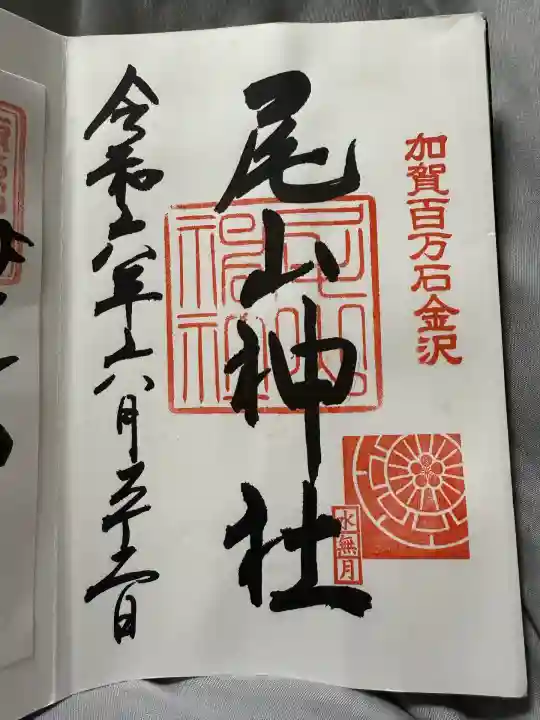 加賀百万石金沢
水無月
尾山神社
尾山神社
令和六年六月 日